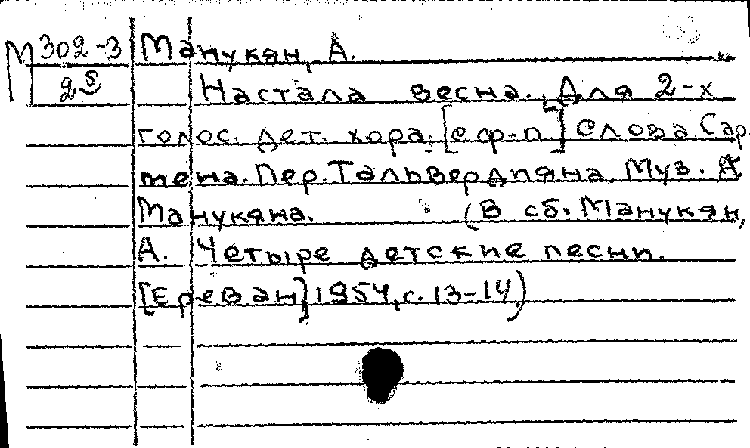 М 302-3 Манукян, А.
Настала весна. Для 2-х
голос. дет. хора. [с ф-п] Слова Сар-
мена. Пер. Тальвердпяна. Муз. А
Манукяна. (В сб. Манукян,
А. Четыре детские песни.
[Ереван], 1954, с. 13-14)